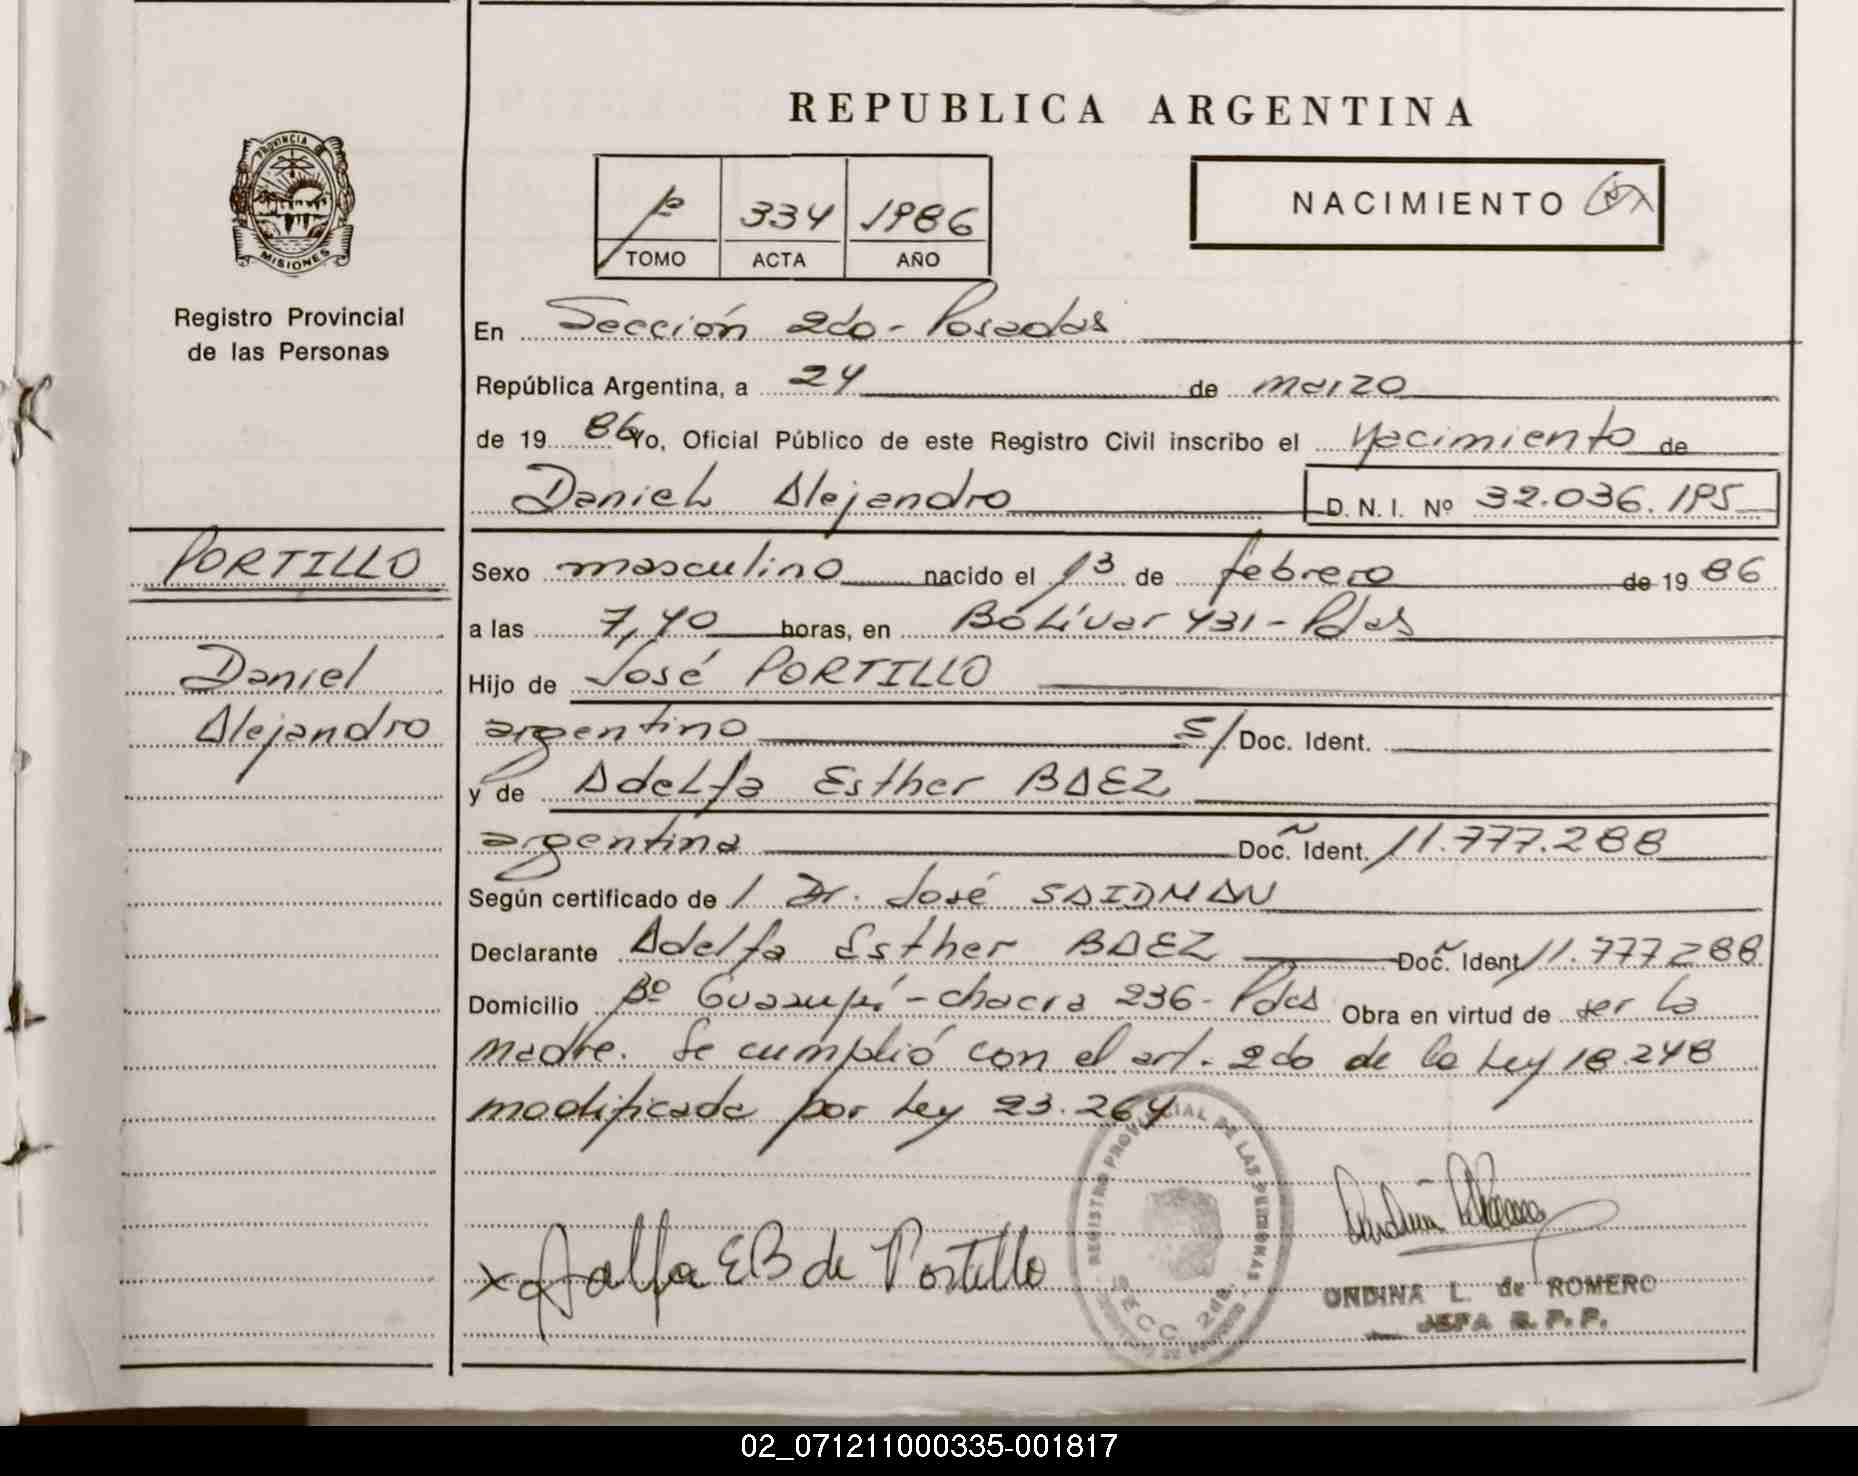 REPUBLICA ARGENTINA
PROVINCIA DE
MISIONES
Registro Provincial
de las Personas
1º 334 1986
TOMO ACTA AÑO
NACIMIENTO
En Sección 2do - Posadas
República Argentina, a 24 de marzo
de 19 86 Yo, Oficial Público de este Registro Civil inscribo el Nacimiento de
Daniel Alejandro D. N. I. Nº 32.036.195
PORTILLO
Daniel
Alejandro
Sexo masculino nacido el 13 de febrero de 19 86
a las 7,40 horas, en Bolívar 431 - Pdas
Hijo de José PORTILLO
argentino S/ Doc. Ident.
y de Adelfa Esther BAEZ
argentina Doc. Ident. 11.777.288
Según certificado de Dr. José SAIDMAN
Declarante Adelfa Esther BAEZ Doc. Ident 11.777.288
Domicilio Bº Guazupí - chacra 236 - Pdas Obra en virtud de ser la
madre. Se cumplió con el art. 2do de la Ley 18.248
modificada por Ley 23.264
REGISTRO PROVINCIAL DE LAS PERSONAS
SECC 2da
x Adalfa EB de Portillo
ONDINA L. de ROMERO
JEFA R. P. P.
02_071211000335-001817